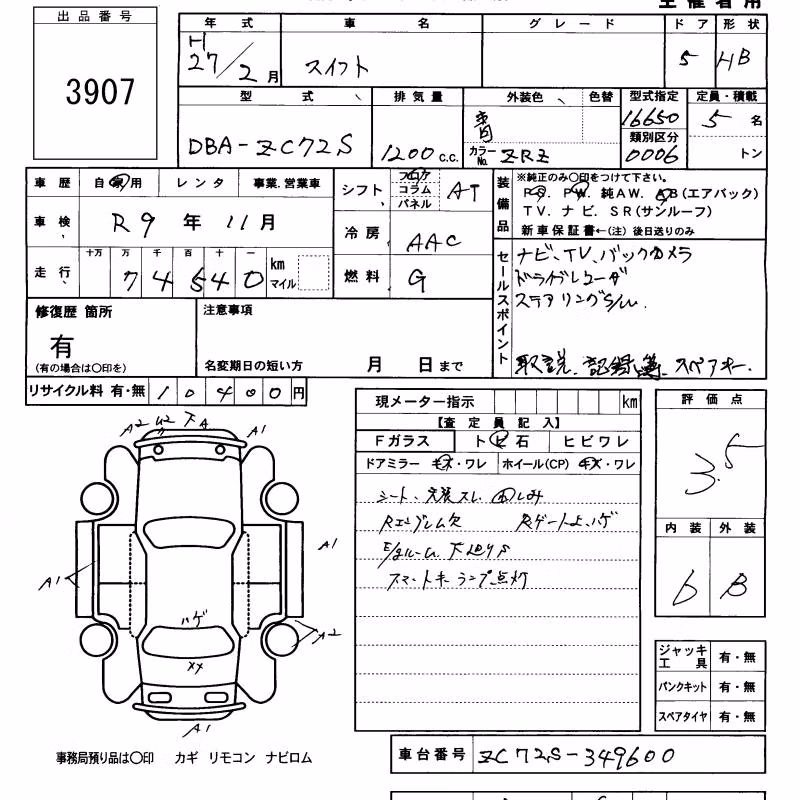 出品番号
3907
年式 車名 グレード ドア 形状
H27/2月 スイフト 5 HB
型式 排気量 外装色 色替 型式指定 定員・積載
DBA-ZC72S 1200c.c. 青 カラーNo. ZRZ 16650 5名
類別区分
0006 トン
車歴 自家用 レンタ 事業.営業車
シフト フロア コラム パネル AT
車検 R9年11月
冷房 AAC
走行 十万 万 千 百 十 一
74540 km マイル
燃料 G
装備品
※純正のみ○印をつけて下さい。
PS. PW. 純AW. AB(エアバック)
TV. ナビ. SR(サンルーフ)
新車保証書←(注) 後日送りのみ
セールスポイント
ナビ、TV、バックカメラ
ドライブレコーダ
ステアリングS/W.
取説、記録簿、スペアキー.
修復歴 箇所
有
(有の場合は○印を)
注意事項
名変期日の短い方 月 日まで
リサイクル料 有・無 10400円
現メーター指示 km
【査定員記入】
Fガラス トビ石 ヒビワレ
ドアミラー キズ・ワレ ホイール(CP) キズ・ワレ
シート、内装スレ しみ
Rエンブレム欠 Rゲート上、ハゲ
E/gルーム 下廻りS
スマートキーランプ点灯
A2 U2 下A A1
A1
A1
A2
ハゲ
XX
A1
評価点
3.5
内装 外装
b B
ジャッキ工具 有・無
パンクキット 有・無
スペアタイヤ 有・無
事務局預り品は○印 カギ リモコン ナビロム
車台番号 ZC72S-349600